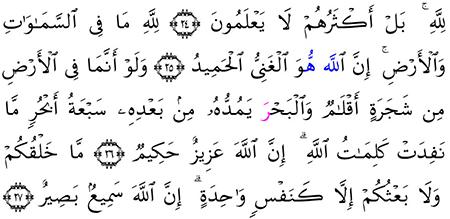 لِلَّهِ ۚ بَلْ أَكْثَرُهُمْ لَا يَعْلَمُونَ ﴿٢٤﴾ لِلَّهِ مَا فِى السَّمَـٰوَٰتِ
وَالْأَرْضِ ۚ إِنَّ اللَّهَ هُوَ الْغَنِىُّ الْحَمِيدُ ﴿٢٥﴾ وَلَوْ أَنَّمَا فِى الْأَرْضِ
مِن شَجَرَةٍ أَقْلَـٰمٌ وَالْبَحْرَ يَمُدُّهُۥ مِنۢ بَعْدِهِۦ سَبْعَةُ أَبْحُرٍ مَّا
نَفِدَتْ كَلِمَـٰتُ اللَّهِ ۗ إِنَّ اللَّهَ عَزِيزٌ حَكِيمٌ ﴿٢٦﴾ مَّا خَلْقُكُمْ
وَلَا بَعْثُكُمْ إِلَّا كَنَفْسٍ وَٰحِدَةٍ ۗ إِنَّ اللَّهَ سَمِيعٌۢ بَصِيرٌ ﴿٢٧﴾